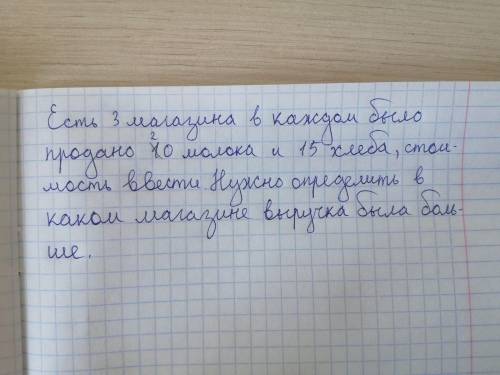 Есть 3 магазина в каждом было
продано 20 молока и 15 хлеба, стои-
мость ввести. Нужно определить в
каком магазине выручка была боль-
ше.